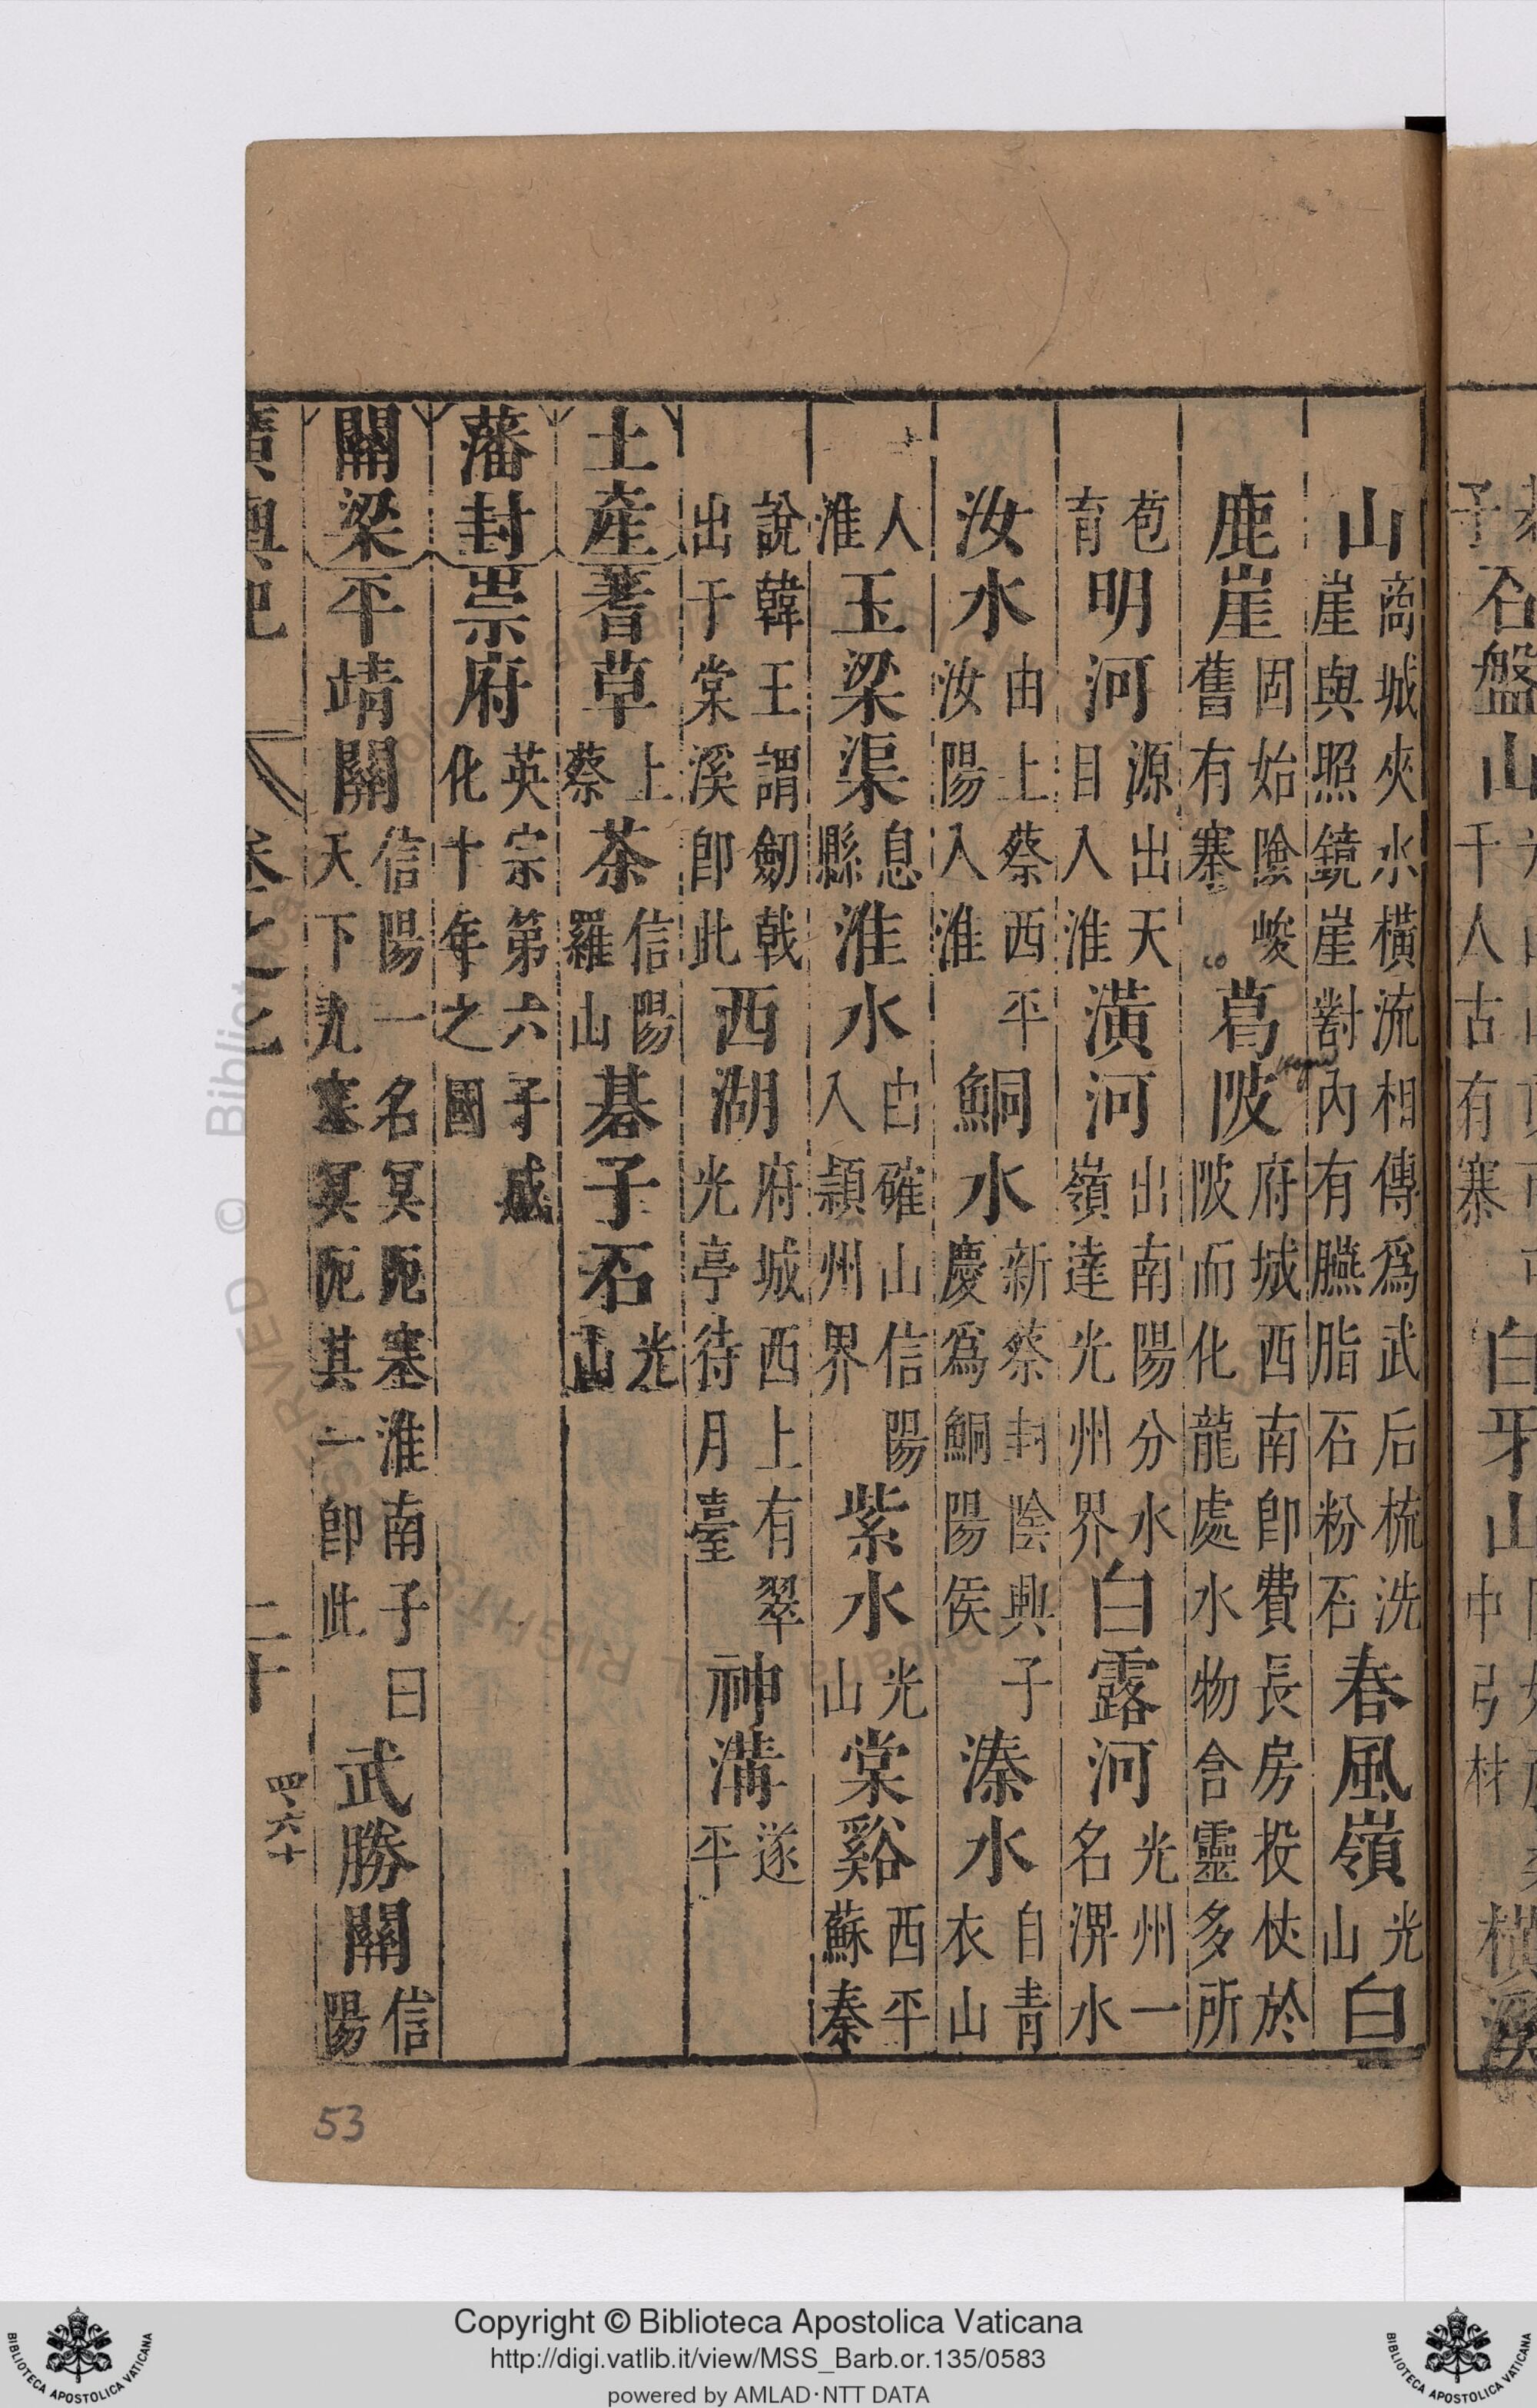 山商城夾水橫流相傳爲武后梳洗崖與照鏡崖對內有臙脂石粉石春風嶺光山白
鹿崖固始險峻舊有寨葛陂府城西南卽費長房投杖於陂而化龍處水物含靈多所
苞育明河源出天目入淮潢河出南陽分水嶺達光州界白露河光州一名淠水
汝水由上蔡西平汝陽入淮鮦水新蔡封陰興子慶爲鮦陽侯溱水自青衣山
人淮玉梁渠息縣淮水由確山信陽入頴州界紫水光山棠谿西平蘇秦
說韓王謂劒戟出于棠溪卽此西湖府城西上有翠光亭待月臺神溝遂平
土產蓍草上蔡茶信陽羅山碁子石光山
藩封崇府英宗第六子成化十年之國
關梁平靖關信陽一名冥阨塞淮南子曰天下九塞冥阨其一卽此武勝關信陽
卷之七
二十
四六十
53
Copyright © Biblioteca Apostolica Vaticana
http://digi.vatlib.it/view/MSS_Barb.or.135/0583
powered by AMLAD·NTT DATA
BIBLIOTECA APOSTOLICA VATICANA
BIBLIOTECA APOSTOLICA VATICANA